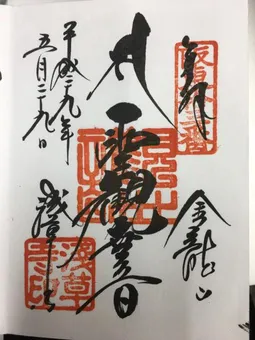 奉拝
坂東十三番
金龍山
聖観世音
平成二九年
五月二九日
浅草寺
浅草寺印